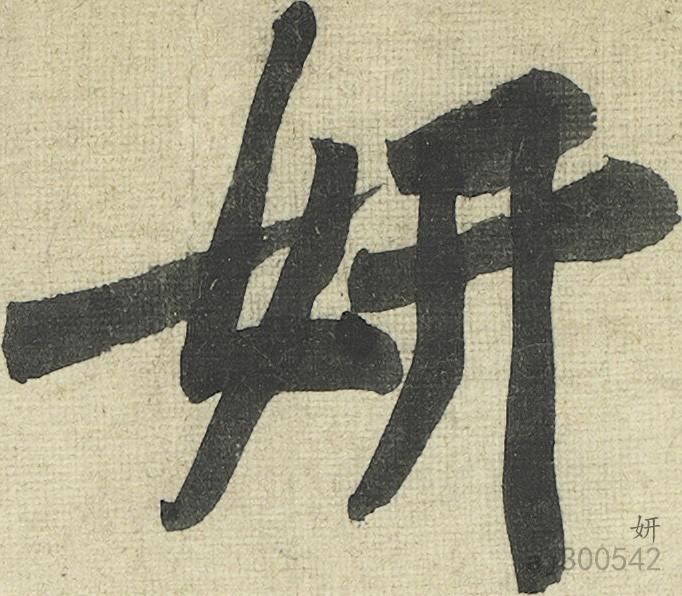 妍
妍
a300542